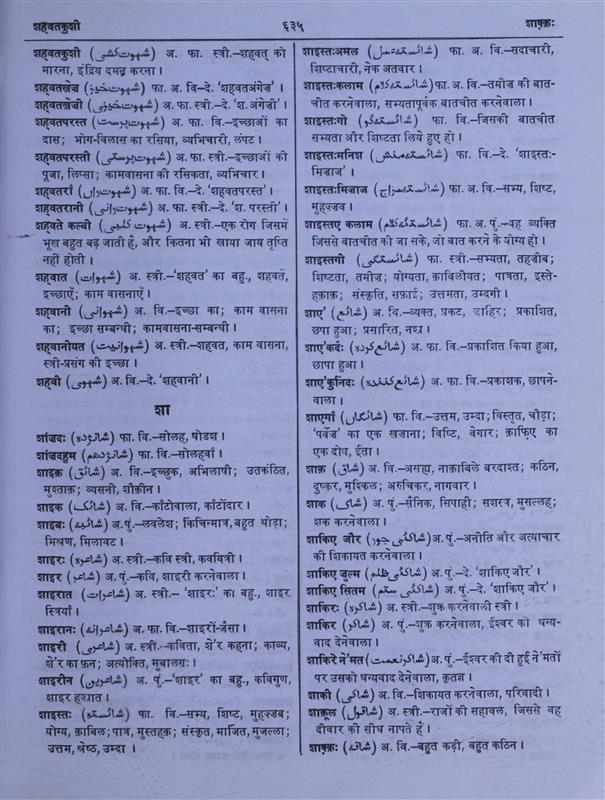 शह्वतकुशी
६३५
शाक़्क़ः
शह्वतकुशी (شہوت کشی) अ. फा. स्त्री.–शह्वत् को
मारना, इंद्रिय दमन करना ।
शह्वतखेज (شہوت خیز) फा. अ. वि–दे. 'शह्वतअंगेज' ।
शह्वतखेजी (شہوت خیزی) अ. फा. स्त्री.–दे. 'श. अंगेजी' ।
शह्वतपरस्त (شہوت پرست) अ. फा. वि.–इच्छाओं का
दास; भोग-विलास का रसिया, व्यभिचारी, लंपट ।
शह्वतपरस्ती (شہوت پرستی) अ. फा. स्त्री.–इच्छाओं की
पूजा, लिप्सा; कामवासना की रसिकता, व्यभिचार ।
शह्वतराँ (شہوت راں) अ. फा. वि.–दे. 'शह्वतपरस्त' ।
शह्वतरानी (شہوت رانی) अ. फा. स्त्री.–दे. 'श. परस्ती' ।
शह्वते कल्बी (شہوت کلبی) अ. स्त्री.–एक रोग जिसमें
भूख बहुत बढ़ जाती है, और कितना भी खाया जाय तृप्ति
नहीं होती ।
शह्वात (شہوات) अ. स्त्री.–'शह्वत' का बहु., शह्वतें,
इच्छाएँ; काम वासनाएँ ।
शह्वानी (شہوانی) अ. वि.–इच्छा का; काम वासना
का; इच्छा सम्बन्धी; कामवासना-सम्बन्धी ।
शह्वानीयत (شہوانیت) अ. स्त्री.–शह्वत, काम वासना,
स्त्री-प्रसंग की इच्छा ।
शह्वी (شہوی) अ. वि.–दे. 'शह्वानी' ।
शा
शांजदः (شانزدہ) फा. वि.–सोलह, षोडश ।
शांजदहुम (شانزدہم) फा. वि.–सोलहवाँ ।
शाइक़ (شائق) अ. वि.–इच्छुक, अभिलाषी; उत्कंठित,
मुश्ताक़; व्यसनी, शौक़ीन ।
शाइक (شائک) अ. वि.–काँटोंवाला, काँटोंदार ।
शाइबः (شائبہ) अ. पुं.–लवलेश; किंचिन्मात्र, बहुत थोड़ा;
मिश्रण, मिलावट ।
शाइरः (شاعرہ) अ. स्त्री.–कवि स्त्री, कवयित्री ।
शाइर (شاعر) अ. पुं.–कवि, शाइरी करनेवाला ।
शाइरात (شاعرات) अ. स्त्री.–'शाइरः' का बहु., शाइर
स्त्रियाँ ।
शाइरानः (شاعرانہ) अ. फा. वि.–शाइरों-जैसा ।
शाइरी (شاعری) अ. स्त्री.–कविता, शे'र कहना; काव्य,
शे'र का फ़न; अत्योक्ति, मुबालग़ः ।
शाइरीन (شاعرین) अ. पुं.–'शाइर' का बहु., कविगुण,
शाइर हज़ात ।
शाइस्तः (شائستہ) फा. वि.–सभ्य, शिष्ट, मुहज़्ज़ब;
योग्य, क़ाबिल; पात्र, मुस्तहक़; संस्कृत, माजित, मुजल्ला;
उत्तम, श्रेष्ठ, उम्दा ।
शाइस्तःअमल (شائستہ عمل) फा. अ. वि.–सदाचारी,
शिष्टाचारी, नेक अतवार ।
शाइस्तःकलाम (شائستہ کلام) फा. अ. वि.–तमीज की बात-
चीत करनेवाला, सभ्यतापूर्वक बातचीत करनेवाला ।
शाइस्तःगो (شائستہ گو) फा. वि.–जिसकी बातचीत
सभ्यता और शिष्टता लिये हुए हो ।
शाइस्तःमनिश (شائستہ منش) फा. वि.–दे. 'शाइस्तः-
मिजाज' ।
शाइस्तःमिजाज (شائستہ مزاج) फा. अ. वि.–सभ्य, शिष्ट,
मुहज़्ज़ब ।
शाइस्तए कलाम (شائستۂ کلام) फा. अ. पुं.–वह व्यक्ति
जिससे बातचीत की जा सके, जो बात करने के योग्य हो ।
शाइस्तगी (شائستگی) फा. स्त्री.–सभ्यता, तहज़ीब;
शिष्टता, तमीज; योग्यता, क़ाबिलीयत; पात्रता, इस्ते-
हक़ाक़; संस्कृति, सफ़ाई; उत्तमता, उम्दगी ।
शाए' (شائع) अ. वि.–व्यक्त, प्रकट, ज़ाहिर; प्रकाशित,
छपा हुआ; प्रसारित, नश्र ।
शाए'कर्दः (شائع کردہ) अ. फा. वि.–प्रकाशित किया हुआ,
छापा हुआ ।
शाए'कुनिंदः (شائع کنندہ) अ. फा. वि.–प्रकाशक, छापने-
वाला ।
शाएगाँ (شائگاں) फा. वि.–उत्तम, उम्दा; विस्तृत, चौड़ा;
'पर्वेज' का एक खजाना; विष्टि, बेगार; क़ाफ़िए का
एक दोष, ईता ।
शाक़ (شاق) अ. वि.–असह्य, नाक़ाबिले बरदाश्त; कठिन,
दुष्कर, मुश्किल; अरुचिकर, नागवार ।
शाक (شاک) अ. पुं.–सैनिक, सिपाही; सशस्त्र, मुसल्लह;
शक करनेवाला ।
शाकिए जौर (شاکئی جور) अ. पुं.–अनीति और अत्याचार
की शिकायत करनेवाला ।
शाकिए ज़ुल्म (شاکئی ظلم) अ. पुं.–दे. 'शाकिए जौर' ।
शाकिए सितम (شاکئی ستم) अ. पुं.–दे. 'शाकिए जौर' ।
शाकिरः (شاکرہ) अ. स्त्री.–शुक्र करनेवाली स्त्री ।
शाकिर (شاکر) अ. पुं.–शुक्र करनेवाला, ईश्वर को धन्य-
वाद देनेवाला ।
शाकिरे ने'मत (شاکر نعمت) अ. पुं.–ईश्वर की दी हुई ने'मतों
पर उसको धन्यवाद देनेवाला, कृतज्ञ ।
शाकी (شاکی) अ. वि.–शिकायत करनेवाला, परिवादी ।
शाक़ूल (شاقول) अ. स्त्री.–राजों की सहावल, जिससे वह
दीवार की सीध नापते हैं ।
शाक़्क़ः (شاقہ) अ. वि–बहुत कड़ी, बहुत कठिन ।